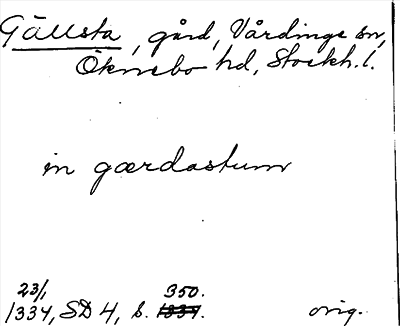 Gällsta, gård, Vårdinge sn,
Öknebo hd, Stockh. l.
in gærdastum
23/1 350.
1334, SD 4, s. 1334. orig.